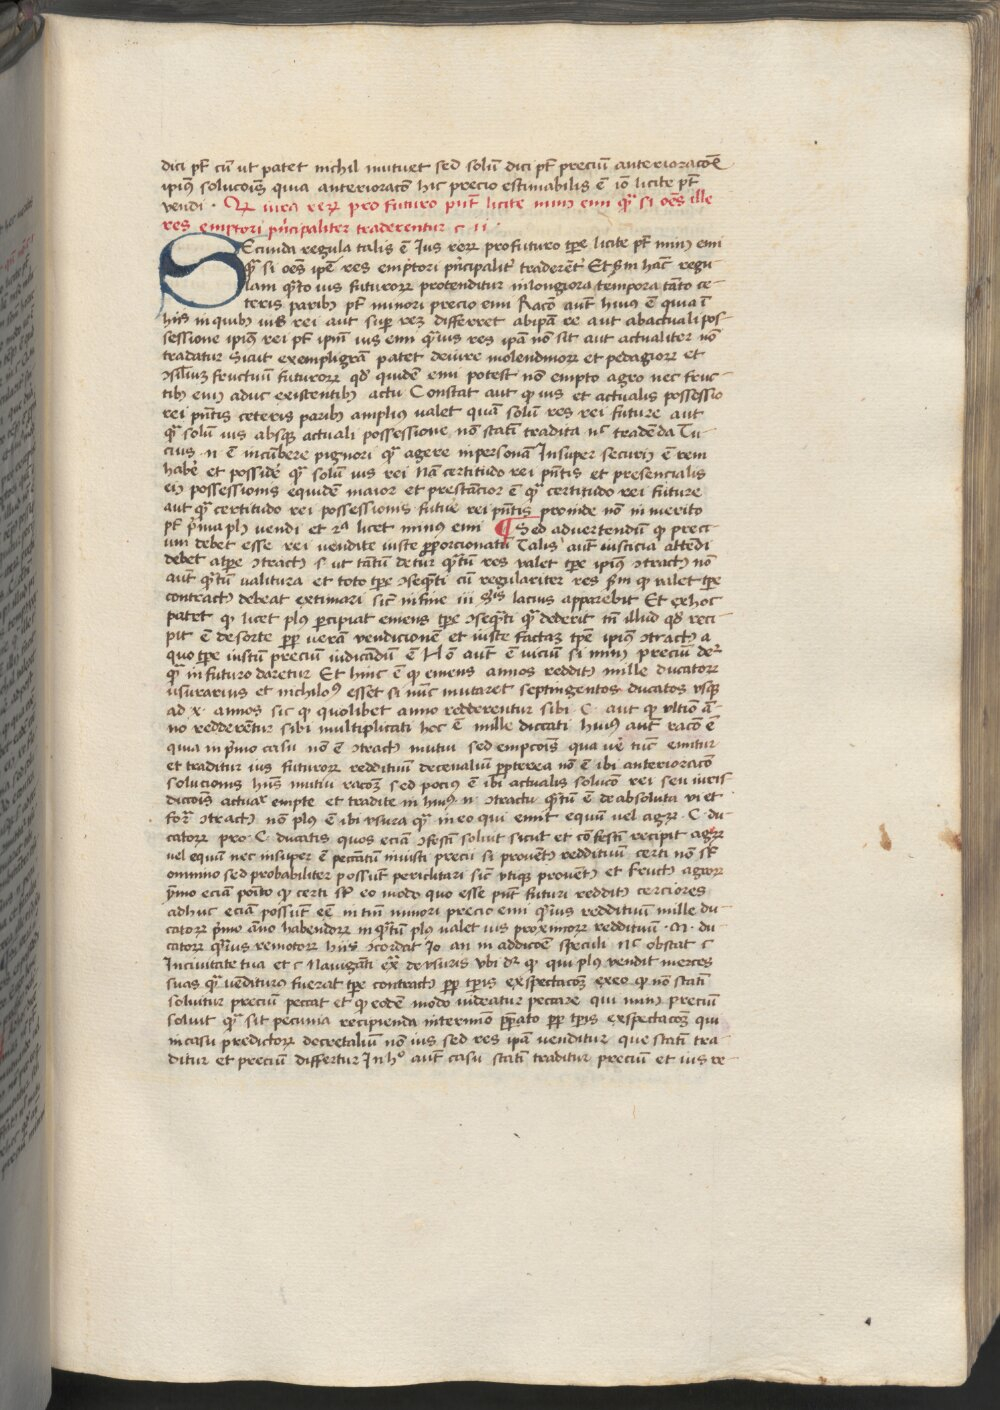 dici pt̄ cū ut patet nichil mutuet sed solū dici pt̄ preciū anterioracōē
ipiꝰ solucōis quia anterioracō hic precio estimabilis ē iō licite pt̄
vendi · Qꝛ iura reꝝ pro futuro pn̄t licite minꝰ emi qᷓ si oēs ille
res emptori pn̄cipaliter traderentur c ii
Secunda regula talis ē Ius reꝝ pro futuro tp̄e licite pt̄ minꝰ emi
qᷓ si oēs ip̄e res emptori pn̄cipalit̄ traderēt̄ Et ẜm hāc regu
lam qᷓto ius futuroꝝ protenditur in longiora tempora tāto ce
teris paribꝰ pt̄ minori precio emi Racō aut̄ huiꝰ ē quia ī
hiis in quibꝰ ius rei aut suꝑ reꝫ differret ab ip̄a re aut ab actuali pos
sessione ipiꝰ rei pt̄ ipm̄ ius emi qᷓuis res ip̄a nō sit aut actualiter nō
tradatur Sicut exempli grā patet de iure molendinoꝝ et pedagioꝝ et
ꝯsiliuꝫ fructuū futuroꝝ qd̄ quidē emi potest nō empto agro nec fruc
tibꝰ eiꝰ aduc existentibꝰ actu Constat aut ꝙ ius et actualis possessio
rei pn̄tis ceteris paribꝰ ampliꝰ valet quā solū res rei future aut
qᷓ solū ius absqꝫ actuali possessione nō statī tradita nc̄ tradēda Tu
cius · n · ē incūbere pignori qᷓ agere in personā Insuper securiꝰ ē rem
habē et possidē qᷓ solū ius rei Nā certitudo rei pn̄tis et presencialis
eiꝰ possessionis equidē maior et prestācior ē qᷓ certitudo rei future
aut qᷓ certitudo rei possessionis future rei pn̄tis proinde nō in merito
pt̄ p̄ma plꝰ vendi et 2ᵃ licet minus emi ¶ Sed aduertendū ꝙ preci
um debet esse rei vendite iuste ꝓporcionatū Talis aut̄ iusticia attēdi
debet a tp̄e ꝯtractꝰ s· ut tātū detur qᷓtū res valet tp̄e ipiꝰ ꝯtractꝰ nō
aut̄ qᷓtū valitura ē toto tp̄e ꝯseqn̄ti cū regulariter res ẜm ꝙ valet tp̄e
contractꝰ debeat extimari sic̄ in fine iii lacius apparebit Et ex hoc
patet ꝙ licet plꝰ percipiat emens tp̄e ꝯseqn̄ti qᷓ dederit tn̄ illud qd̄ reci
pit ē de sorte ꝓp̄ verā vendicionē et iuste factaꝫ tp̄e ipiꝰ ꝯtractꝰ a
quo tp̄e iustū preciū iudicādū ē Nō aut̄ ē viciū si minꝰ preciū det̄
qᷓ in futuro daretur Et hinc ē ꝙ emens annos redditꝰ mille ducatoꝝ
usurarius et nichilōꝰ esset si nūc mutuaret septingentos ducatos vsqꝫ
ad x· annos sic ꝙ quolibet anno redderentur sibi ·C· aut ꝙ vltīo ā
no redderētur sibi multiplicati hoc ē mille duccati huiꝰ aut̄ racō ē
quia in p̄mo casu nō ē ꝯtractꝰ mutui sed empcōis qua vē tūc emitur
et traditur ius futuroꝝ reddituū decenaliū ꝓpterea nō ē ibi anterioracō
solucionis hiīs mutui racōꝫ sed pociꝰ ē ibi actualis solucō rei seu iuris
dicōis actuaꝝ empte et tradite in huiꝰ · n· ꝯtractu qᷓtū ē de absoluta vi et
for̄ ꝯtractꝰ nō plꝰ ē ibi vsura qᷓ in eo qui emit equū vel agꝝ ·C· du
catoꝝ pro ·C· ducatis quos eciā ꝯfestī soluit sicut et cōfestī recipit agꝝ
vel equū nec insuper ē peccatū iniusti precii si prouētꝰ reddituū certi nō st̄
omnino sed probabiliter possut̄ periclitari sic̄ vtiqꝫ prouētꝰ et fructꝰ agroꝝ
ymo eciā posito ꝙ certi st̄ eo modo quo esse pn̄t futuri redditꝰ cerciores
adhuc eciā possut̄ eē in tm̄ minori precio emi qᷓuis reddituū mille du
catoꝝ p̄mo āno habendoꝝ in qᷓtū plꝰ valet ius proximoꝝ reddituū ·M· du
catoꝝ qᷓuis remotoꝝ hiis ꝯcordat Io an in addicōē speculi Nc̄ obstat c
In ciuitate tua et c Nauigāti ex̄ de vsuris vbi dꝛ ꝙ qui plꝰ vendit merces
suas qᷓ vēditurꝰ fuerat tp̄e contractꝰ ꝓp̄ tp̄is exspectacōꝫ ex eo ꝙ nō statī
soluitur preciū peccat et ꝙ eodē modo videatur peccare qui minꝰ preciū
soluit qᷓ sit pecunia recipienda in termīo ꝓp̄ato ꝓp̄ tp̄is exspectacōꝫ qui
in casu predictoꝝ decretaliū nō ius sed res ip̄a venditur que statī tra
ditur et preciū differtur In hᵒ aut̄ casu statī traditur preciū et ius re